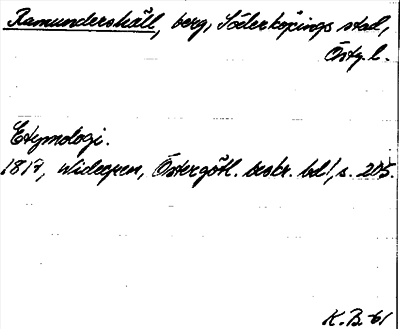 Ramundershäll, berg, Söderköpings stad,
Östg. l.
Etymologi.
1817, Widegren, Östergötl. beskr. bd 1, s. 205.
K. B. -61